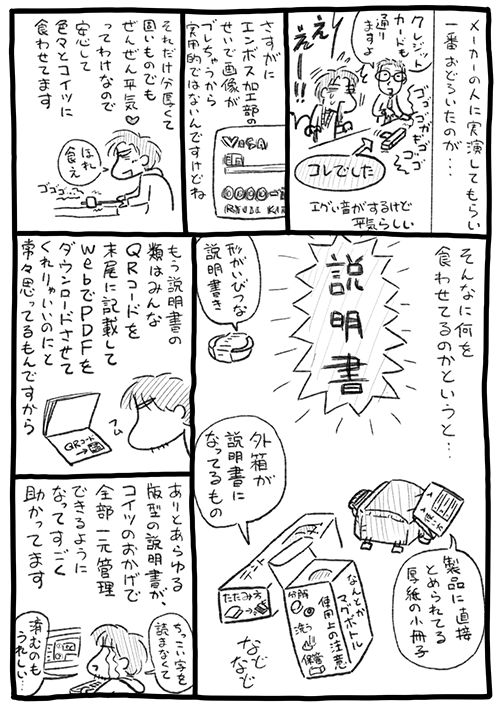 メーカーの人に実演してもらい
一番おどろいたのが…
クレジット
カードも
通り
ますよ
ええ!
ゴゴゴガギゴゴ
コレでした
エグい音がするけど
平気らしい
さすがに
エンボス加工部の
せいで画像が
ブレちゃうから
実用的ではないんですけどね
VISA
それだけ分厚くて
固いものでも
ぜんぜん平気♡
ってわけなので
安心して
色々とコイツに
食わせてます
ほれ
食え
ゴゴゴ…
そんなに何を
食わせてるのかというと…
説明書
形がいびつな
説明書き
外箱が
説明書に
なってるもの
製品に直接
とめられてる
厚紙の小冊子
たたみ方
なんとか
マグボトル
使用上の注意
分解
洗う
保管
なで
なで
もう説明書の
類はみんな
QRコードを
末尾に記載して
webでPDFを
ダウンロードさせて
くれりゃいいのにと
常々思ってるもんですから
QRコード
フム
ありとあらゆる
版型の説明書が、
コイツのおかげで
全部一元管理
できるように
なってすごく
助かってます
ちっこい字を
読まなくて
済むのも
うれしい…